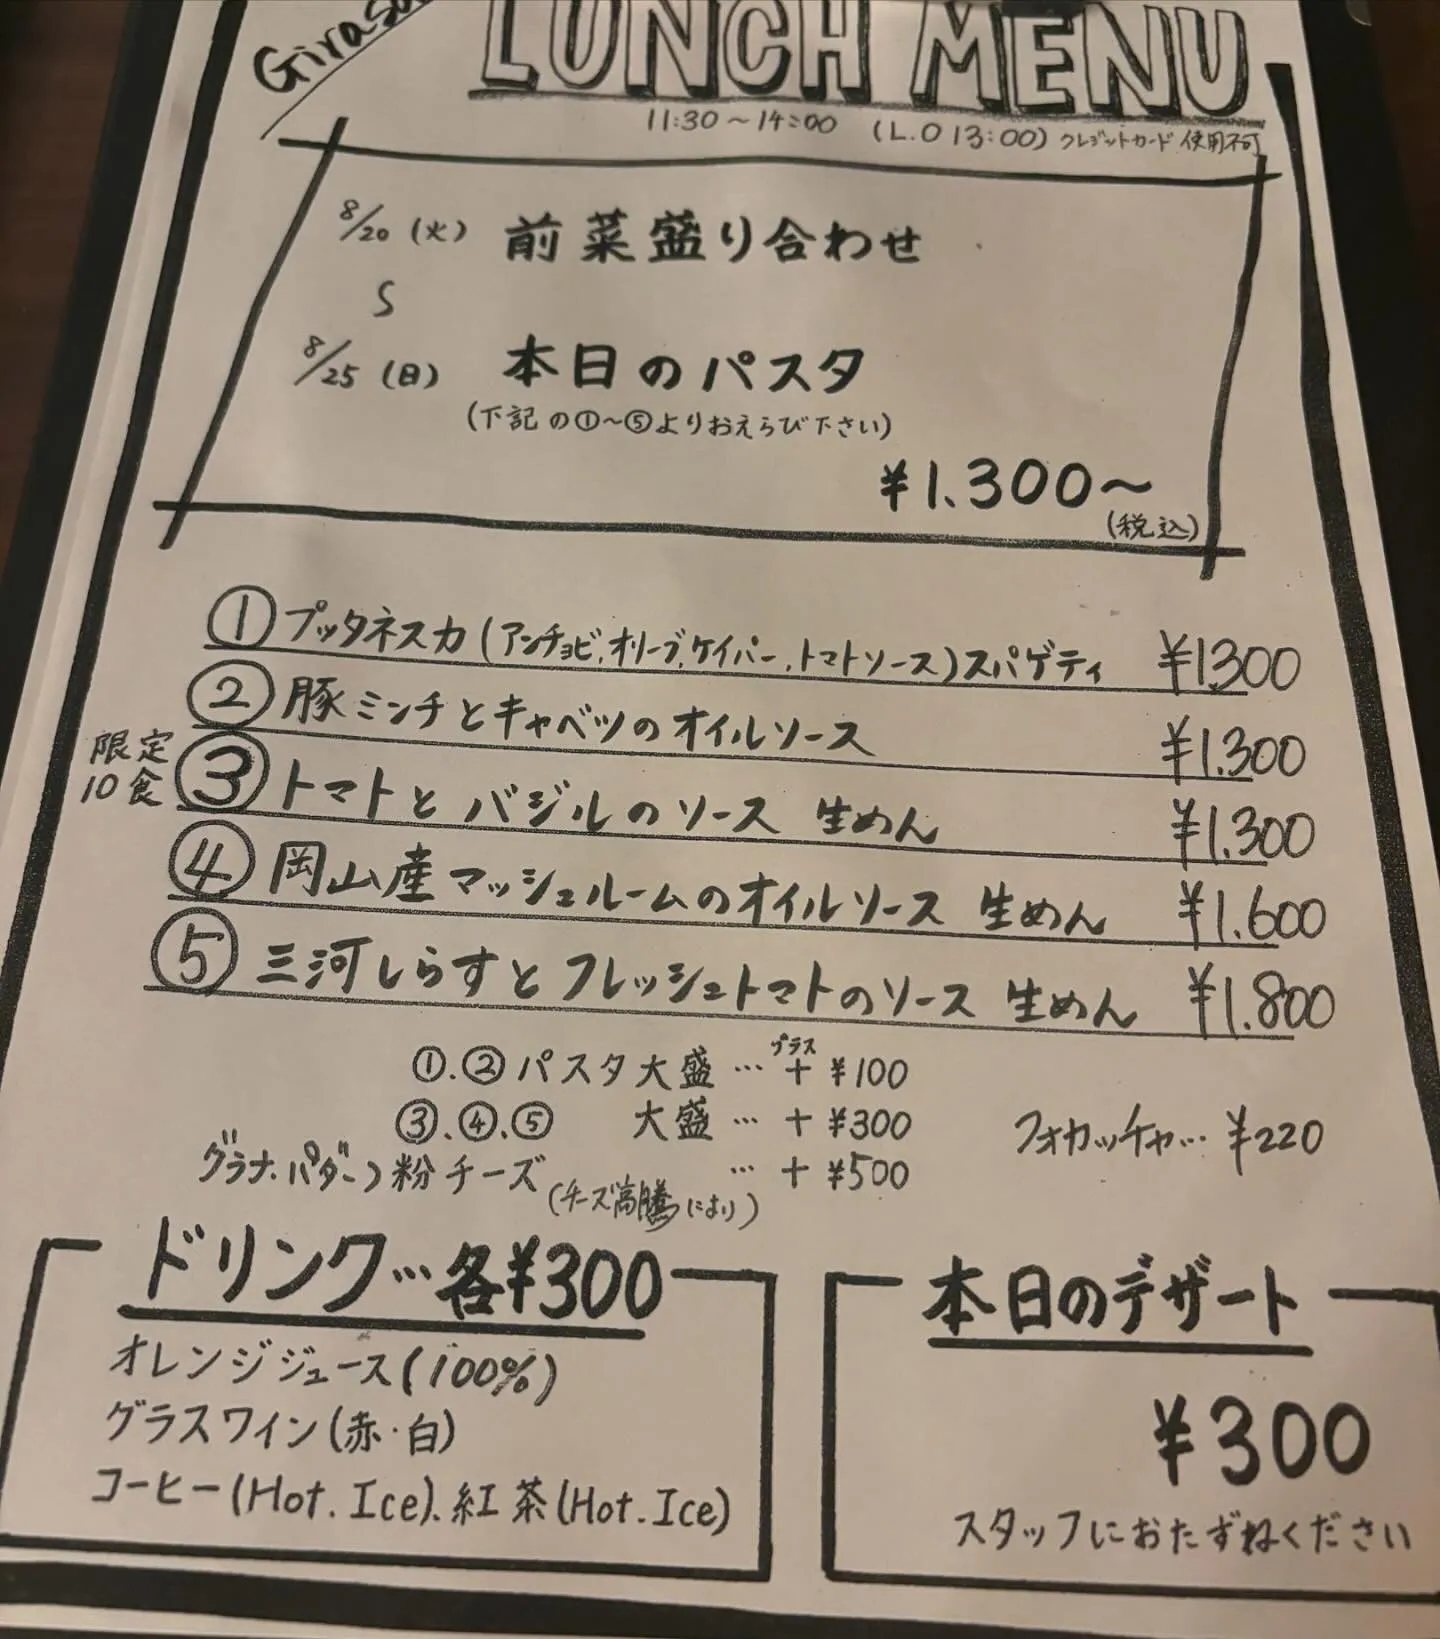 LUNCH MENU
11:30～14:00 (L.O 13:00) クレジットカード 使用不可
8/20 (火) 前菜盛り合わせ
～
8/25 (日) 本日のパスタ
(下記の①～⑤よりおえらび下さい)
¥1.300～
(税込)
① プッタネスカ (アンチョビ、オリーブ、ケイパー、トマトソース) スパゲティ ¥1300
② 豚ミンチとキャベツのオイルソース ¥1.300
限定
10食
③ トマトとバジルのソース 生めん ¥1.300
④ 岡山産マッシュルームのオイルソース 生めん ¥1.600
⑤ 三河しらすとフレッシュトマトのソース 生めん ¥1.800
プラス
①.② パスタ大盛 … + ¥100
③.④.⑤ 大盛 … + ¥300
フォカッチャ… ¥220
グラナ・パダーノ粉チーズ … + ¥500
(チーズ高騰により)
ドリンク…各¥300
オレンジジュース(100%)
グラスワイン(赤・白)
コーヒー(Hot. Ice). 紅茶(Hot. Ice)
本日のデザート
¥300
スタッフにおたずねください